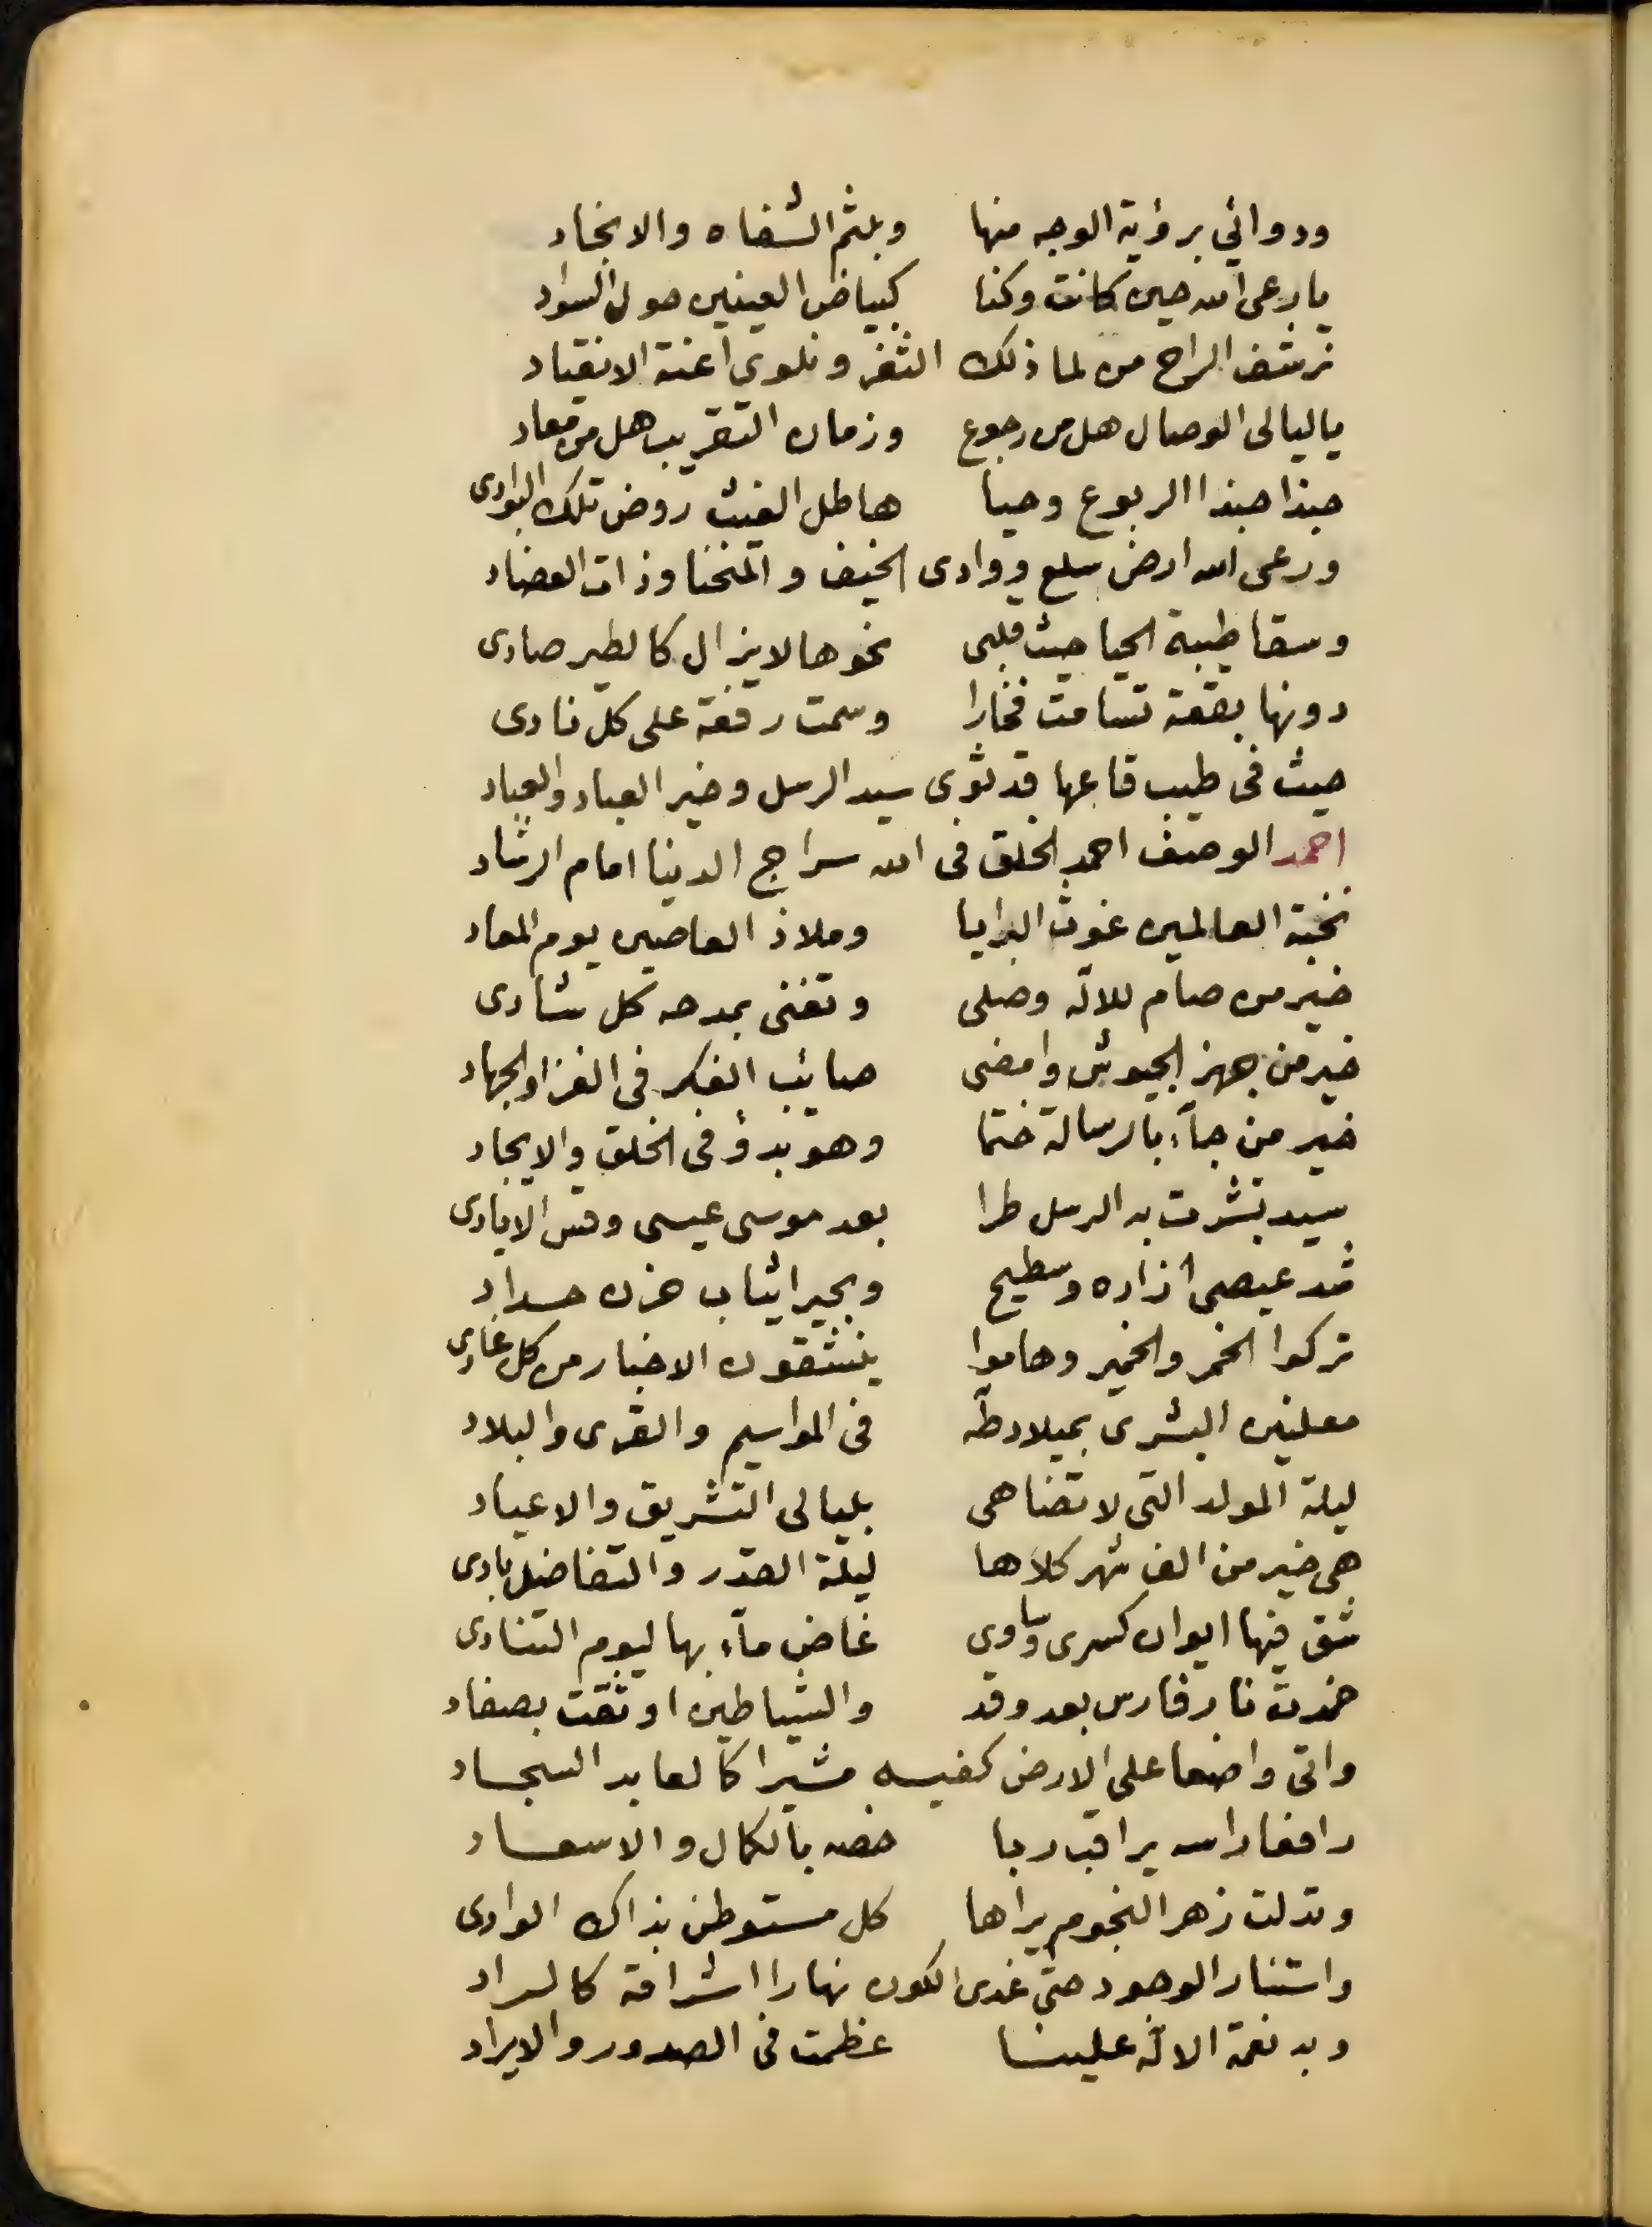 ودوائي برؤية الوجه منها وبلثم الشفاه والانجاد
يا رعى الله حين كانت وكنا كبياض العينين حول السواد
نرشف الراح من لما ذلك الثغر ونلوي أعنة الانقياد
يا ليالى الوصال هل من رجوع وزمان التقريب هل من معاد
حبذا حبذا الربوع وحيا هاطل الغيث روض تلك البوادى
ورعى الله ارض سلع ووادى الخيف والمنحنا وذات العضاد
وسقا طيبة الحيا حيث قلبى نحوها لا يزال كالطير صادى
دونها بقعة تسامت فخارا وسمت رفعة على كل نادى
حيث فى طيب قاعها قد ثوى سيد الرسل وخير العباد والعباد
احمد الوصف احمد الخلق فى الله سراج الدينا امام الرشاد
نخبة العالمين غوث البرايا وملاذ العاصين يوم المعاد
خير من صام للاله وصلى وتغنى بمدحه كل شادى
خير من جهز الجيوش وامضى صائب الفكر فى الغزا والجهاد
خير من جآء بالرسالة ختما وهو بدؤ فى الخلق والايجاد
سيد بشرت به الرسل طرا بعد موسى عيسى وقس الايادى
شد عيصى أزاره وسطيح وبحيرا ثياب حزن حداد
تركوا الخمر والخمير وهاموا ينشقون الاخبار من كل غادى
معلنين البشرى بميلاد طه فى المواسيم والقرى والبلاد
ليلة المولد التى لا تضاهى بليالى التشريق والاعياد
هى خير من الف شهر كلاها ليلة القدر والتفاضل بادى
شق فيها ايوان كسرى وساوى غاض مآء بها ليوم التنادى
خمدت نار فارس بعد وقد والشياطين اوثقت بصفاد
واتى واضعا على الارض كفيه مشيرا كالعابد السجاد
رافعا راسه يراقب ربا خصه بالكمال والاسعاد
وتدلت زهر النجوم يراها كل مستوطن بذاك الوادى
واستنار الوجود حتى غدى الكون نهارا اشراقة كالراد
وبد نعمة الاله علينا عظمت فى الصدور والايراد